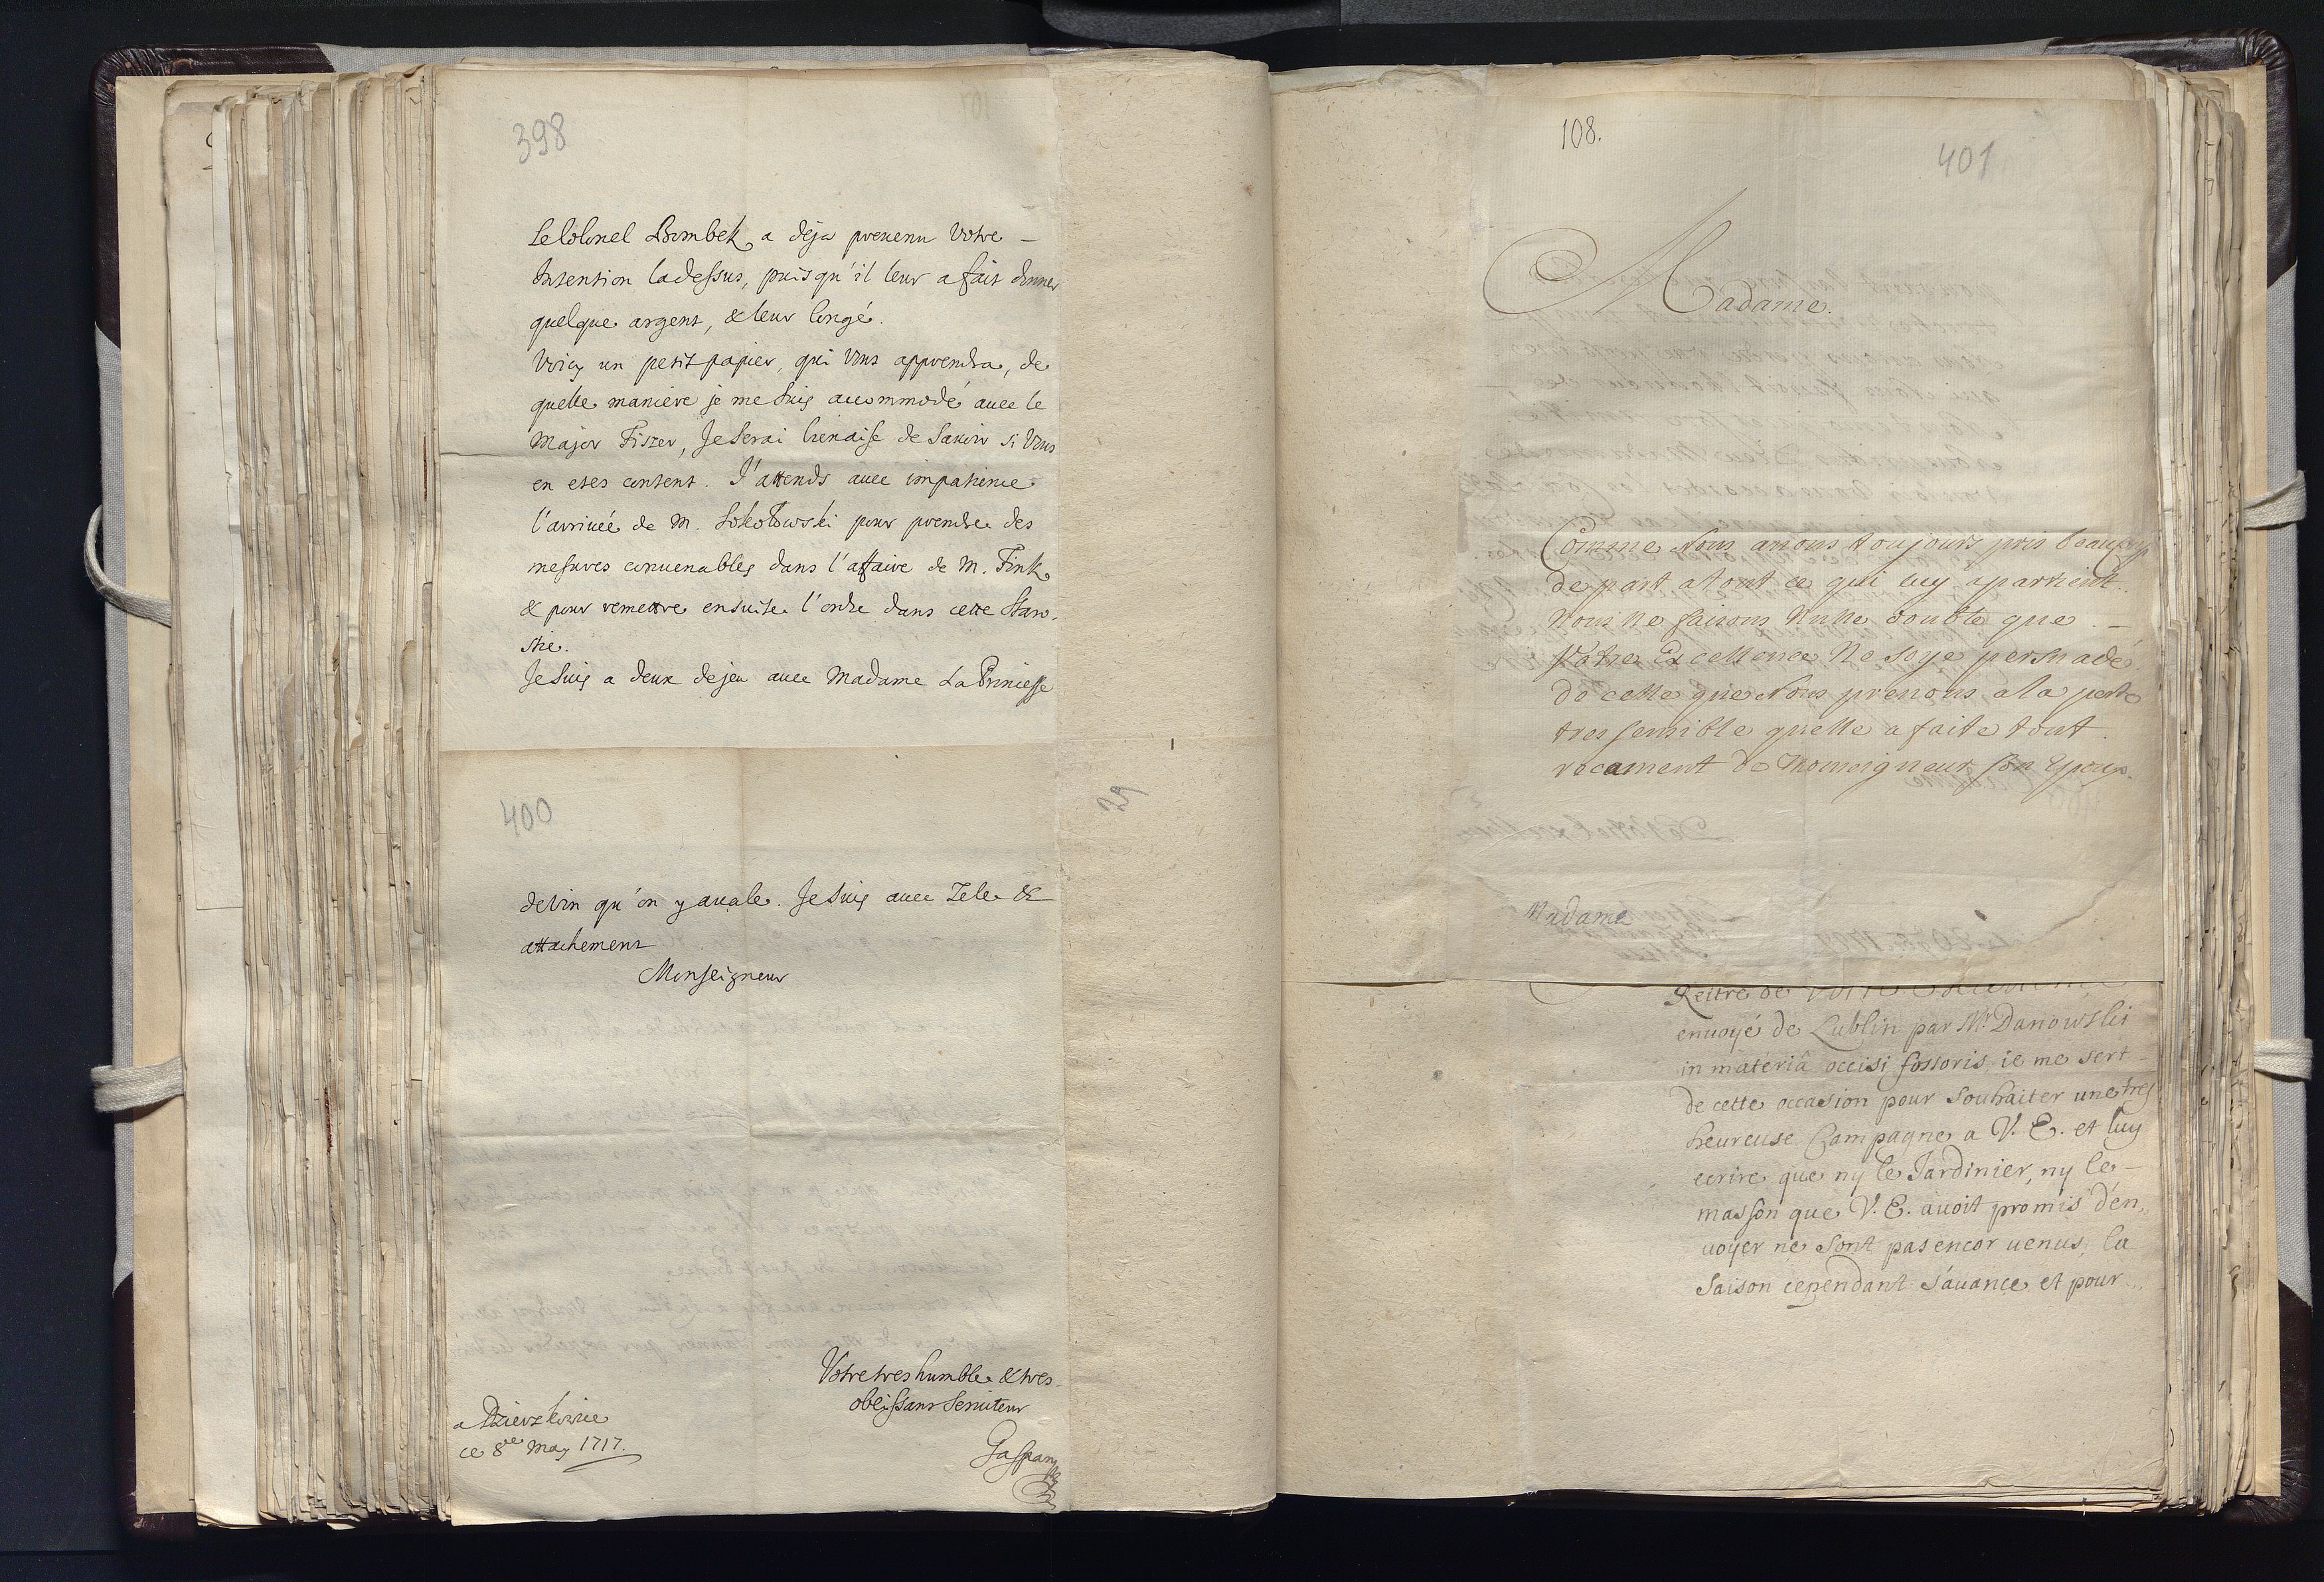 398
Le Colonel Bombek a deja prevenu Votre –
Intention ladessus, puisqu'il leur a fait donner
quelque argent, & leur Congé.
Voicy un petit papier, qui Vous apprendra, de
quelle maniere je me suis accommodé avec le
Major Fiszer, Je Serai bienaise de Savoir si Vous
en etes content. J'attends avec impatience
l'arrivée de M. Sokołowski pour prendre des
mesures convenables dans l'affaire de M. Fink
& pour remettre ensuite l'ordre dans cette Staro-
stie.
Je Suis a deux dejeu avec Madame La Princesse
400
de Vin qu'on y avale. Je Suis avec Zele &
attachement
Monseigneur
Votre tres humble & tres
obeissant Serviteur
a
ce 8me May 1717.
108.
401
Madame.
Comme Nous avons toujours pris beaucoup
de part a tout ce qui luy apartient.
Nous Ne faisons Nulle doubte que . –
Votre Excellence Ne soye persuadé
de celle que Nous prenons, a la perte
tres sensible quelle a faite tout
recament de Monseigneur son Epoux.
Madame
envoyé de Lublin par Mr Danowski
in materiâ occisi fossoris ie me sert –
de cette occasion pour souhaiter une tres
heureuse Campagne a V. E. et luy
ecrire que ny le Jardinier, ny le –
masson que V. E. avoit promis d'en„
uoyer ne sont pas encor uenus, la
Saison cependant s'auance et pour